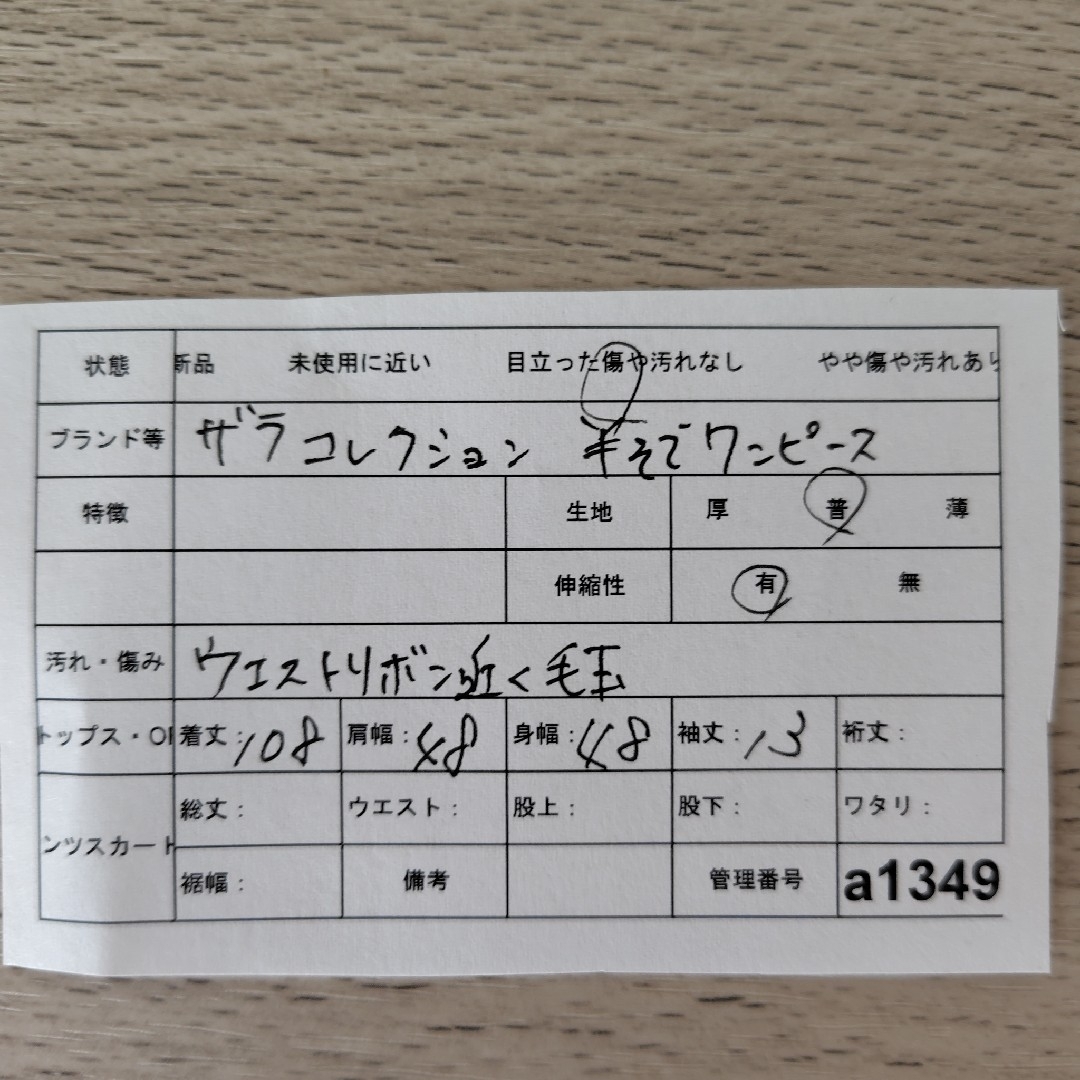 状態 新品 未使用に近い 目立った傷や汚れなし やや傷や汚れあら
ブランド等 ザラコレクション 半そでワンピース
特徴 生地 厚 普 薄
伸縮性 有 無
汚れ・傷み ウエストリボン近く毛玉
トップス・OP 着丈:108 肩幅:48 身幅:48 袖丈:13 裄丈:
総丈: ウエスト: 股上: 股下: ワタリ:
ンツスカート
裾幅: 備考 管理番号 a1349